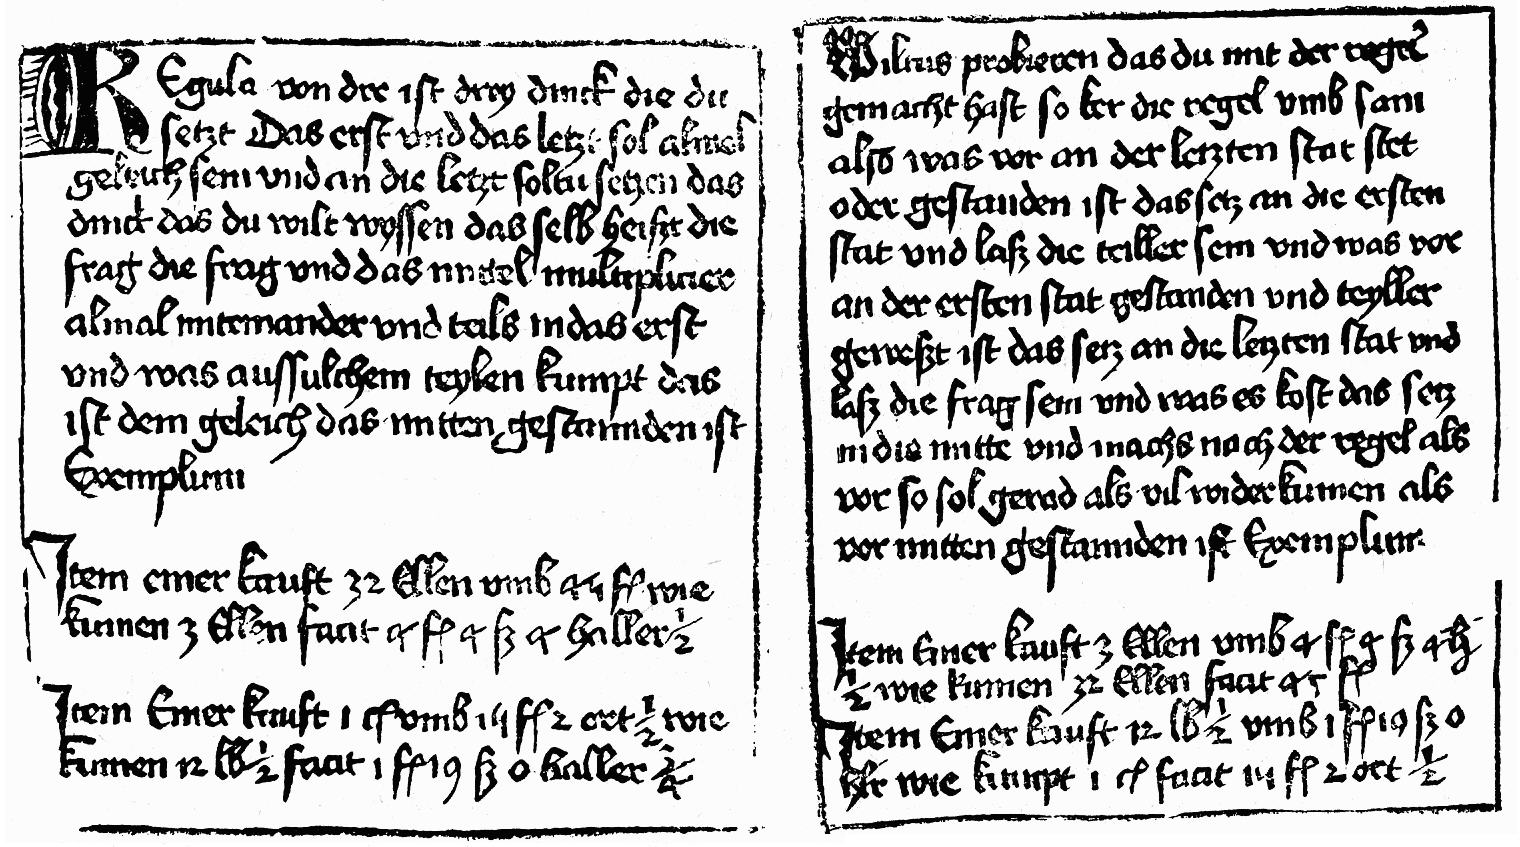 REgula von dre ist drey dinck die du
setzt Das erst vnd das letzt sol almal
geleich sein vnd an die letzt soltu setzen das
dinck das du wilt wyssen das selb heisst die
frag die frag vnd das mittel multiplicier
almal miteinander vnd teils in das erst
vnd was aussulchem teylen kumpt das
ist dem geleich das mitten gestannden ist
Exemplum
Item einer kauft 32 Ellen vmb 45 fl wie
kumen 3 Ellen facit 4 fl 4 ß 4 haller 1/2
Item Einer kauft 1 vmb 3 fl 2 ort 1/2 wie
kumen 12 lb 1/2 facit 1 fl 19 ß 0 haller 3/4
Wiltus probieren das du mit der regel
gemacht hast so ker die regel vmb sam
also was vor an der letzten stat stet
oder gestanden ist das setz an die ersten
stat vnd laß die teiller sein vnd was vor
an der ersten stat gestanden vnd teyller
geweßt ist das setz an die letzten stat vnd
laß die frag sein vnd was es kost das setz
in die mitte vnd machs nach der regel als
vor so sol gerad als vil widerkumen als
vor mitten gestannden ist Exemplum
Item Einer kauft 3 Ellen vmb 4 fl 4 ß 4 h
1/2 wie kumen 32 Ellen facit 45 fl
Item Einer kauft 12 lb 1/2 vmb 1 fl 19 ß 0
hlr wie kumpt 1 facit 3 fl 2 ort 1/2